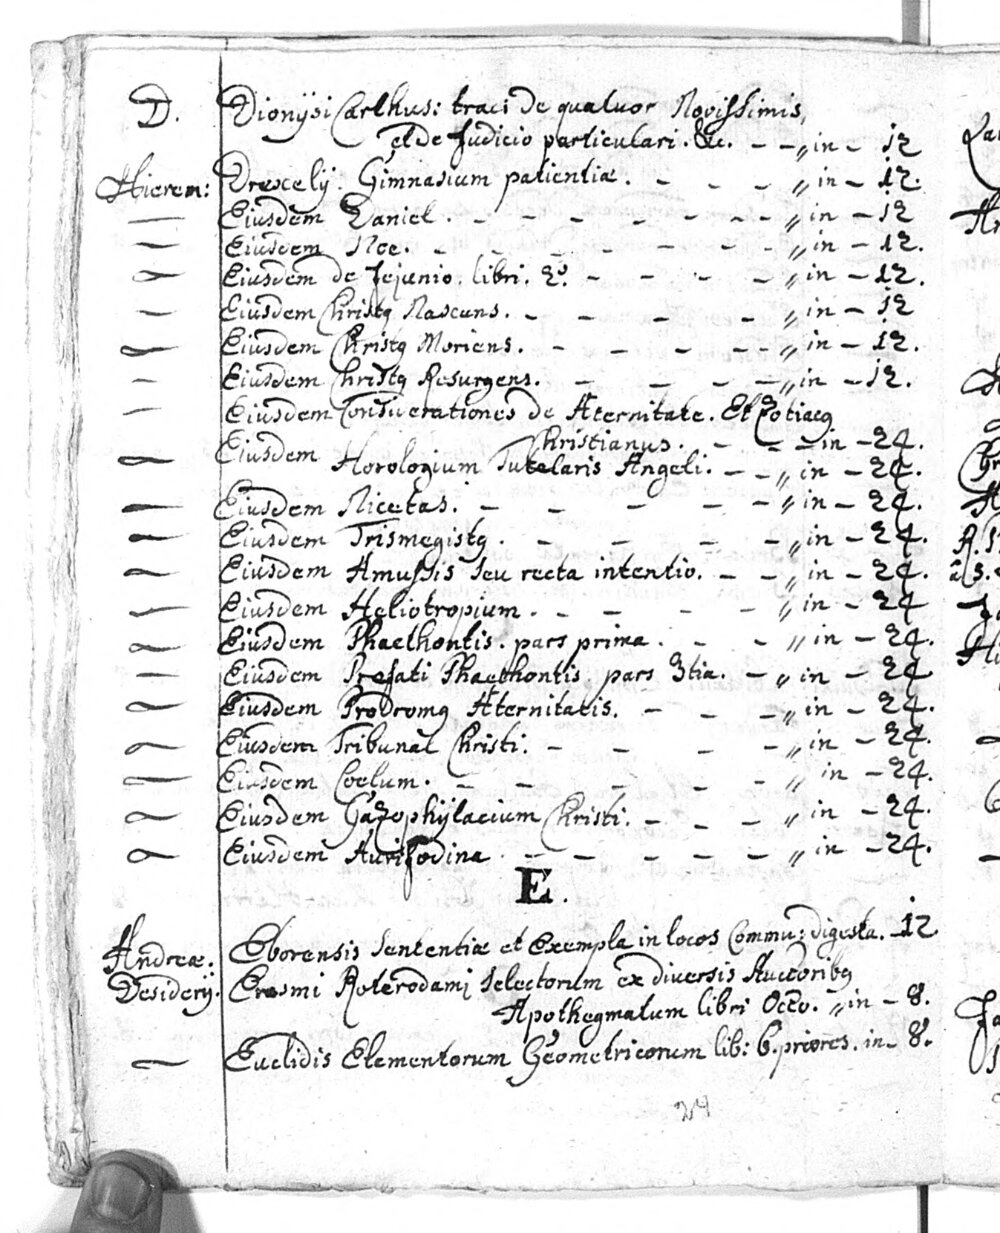 D. Dionÿsi Carthus: trac: de qualuor Novissimis,
et de Judicio particulari. &c. - - „ in - 12
Hierem: Drexelÿ. Gimnasium patientiæ. - - - - „ in - 12.
— Eiusdem Daniel - - - - - - - „ in - 12
— Eiusdem Noe. - - - - - - - „ in - 12.
— Eiusdem de Jejunio. libri. 2. - - - - - „ in - 12.
— Eiusdem Christq Nascens. - - - - - „ in - 12
— Eiusdem Christq Moriens. - - - - - „ in - 12.
— Eiusdem Christq Resurgens. - - - - „ in - 12.
— Eiusdem Considerationes de Æternitate. Et Zodiacq
Christianus. - - - - in - 24.
— Eiusdem Horologium Tutelaris Angeli. - - „ in - 24.
— Eiusdem Nicetas. - - - - - - „ in - 24.
— Eiusdem Trismegistq. - - - - - „ in - 24.
— Eiusdem Amussis seu recta intentio. - - „ in - 24.
— Eiusdem Heliotropium. - - - - - „ in - 24
— Eiusdem Phaethontis. pars prima. - - - „ in - 24.
— Eiusdem Prefati Phaethontis. pars 3tia. - - „ in - 24
— Eiusdem Prodromq Æternitatis. - - - „ in - 24.
— Eiusdem Tribunal Christi. - - - - „ in - 24.
— Eiusdem Coelum. - - - - - - „ in - 24.
— Eiusdem Gazophÿlacium Christi. - - - - „ in - 24.
— Eiusdem Aurifodina - - - - - - „ in - 24.
E.
Andreæ. Eborensis Sententiæ et Exempla in locos Commu: digesta. - 12
Desiderÿ. Erasmi Roterodamj Selectorum ex diversis Auctoribq
Apothegmatum libri Octo. „ in - 8.
— Euclidis Elementorum Geometricorum lib: 6. priores. in - 8.
24